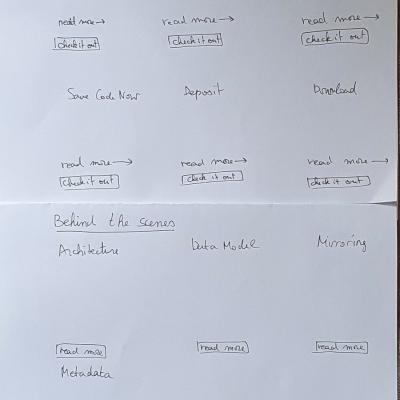 read more→ read more→ read more→
check it out check it out check it out
Save Code Now Deposit Download
read more→ read more→ read more→
check it out check it out check it out
Behind the scenes
Architecture Data Model Mirroring
read more read more read more
Metadata